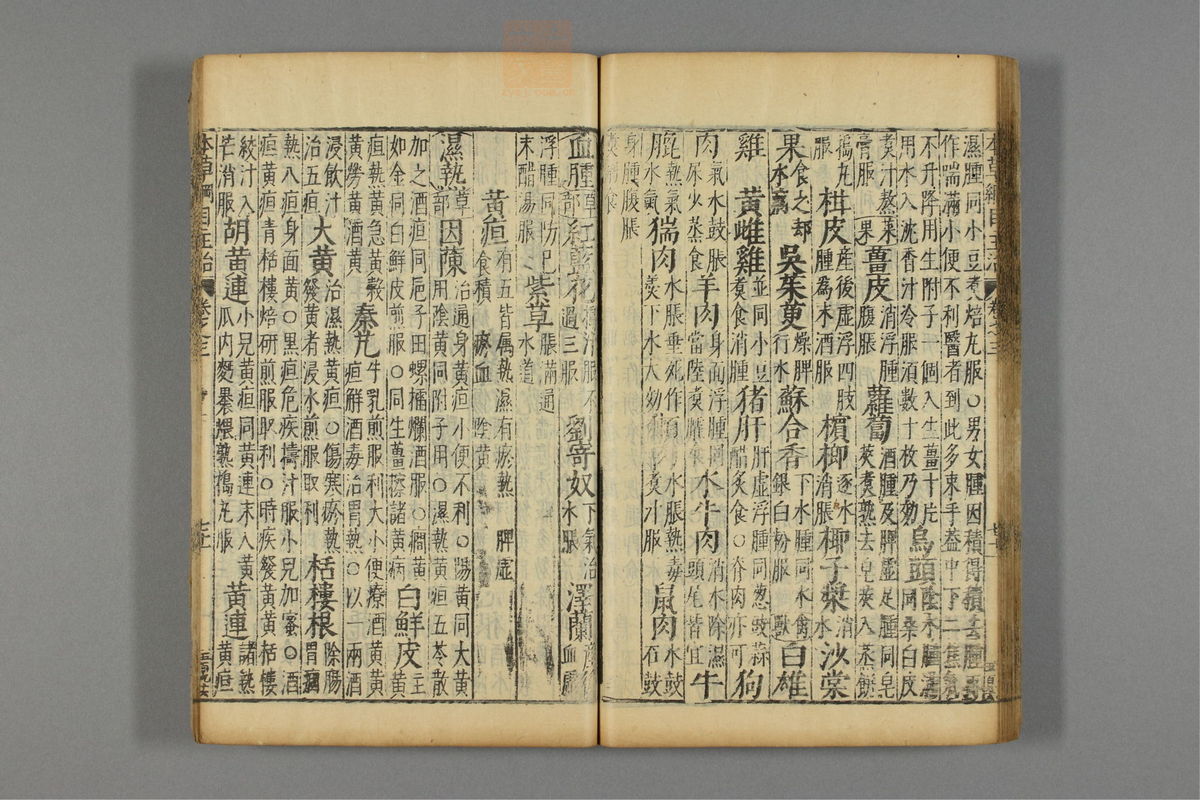 本草綱目主治 卷之三
濕腫同小豆煑焙丸服○男女腫因積得積去腫再
作喘滿小便不利醫者到此多束手蓋中下二焦氣
不升降用生附子一個入生薑十片用水入沈香汁冷服須數十枚乃効 烏頭 陰水腫滿同桑白皮
煑汁熬膏服 果 薑皮 消浮腫腹脹 蘿蔔 酒腫及脾虛足腫同皂莢煑熟去皂莢入蒸餅
搗丸服 柑皮 產後虛浮四肢腫為末酒服 檳榔 逐水消脹 椰子漿 消水 沙棠
果 食之却水病 吳茱萸 燥脾行水 蘇合香 下水腫同水銀白粉服 禽獸 白雄
雞 黃雌雞 並同小豆煑食消腫 猪肝 肝虛浮腫同葱豉蒜醋炙食○脊肉亦可 狗
肉 氣水鼓脹尿少蒸食 羊肉 身面浮腫同當陸煑臛 水牛肉 消水除濕頭尾皆宜 牛
熱氣水氣 猯肉 水脹垂死作羹下水大効 水脹熱毒煑汁服 鼠肉 水鼓石
身腫腹脹煑粥食
血腫 草部 紅藍花 搗汁服不過三服 劉寄奴 下氣治水脹 澤蘭 產後血虛
浮腫同防己末醋湯服 紫草 脹滿通水道
黃疸 有五皆属熱濕有瘀熱 脾虛 食積 瘀血 陰黃
濕熱 草部 茵陳 治通身黃疸小便不利○陽黃同大黃用陰黃同附子用○濕熱黃疸五苓散
加之酒疸同巵子田螺擂爛酒服○癇黃如金同白鮮皮煎服○同生薑擦諸黃病 白鮮皮 主黃
疸熱黃急黃穀黃勞黃酒黃 秦艽 牛乳煎服利大小便療酒黃黃疸解酒毒治胃熱○以一兩酒
浸飲汁治五疸 大黃 治濕熱黃疸○傷寒瘀熱發黃者浸水煎服取利 栝樓根 除腸胃痼
熱八疸身面黃○黑疸危疾擣汁服小兒加蜜○酒
疸黃疸青栝樓焙研煎服取利○時疾發黃黃栝樓
絞汁入芒消服 胡黃連 小兒黃疸同黃連末入黃瓜內麪裹煨熟搗丸服 黃連 諸熱黃疸
本草綱目主治 卷之三